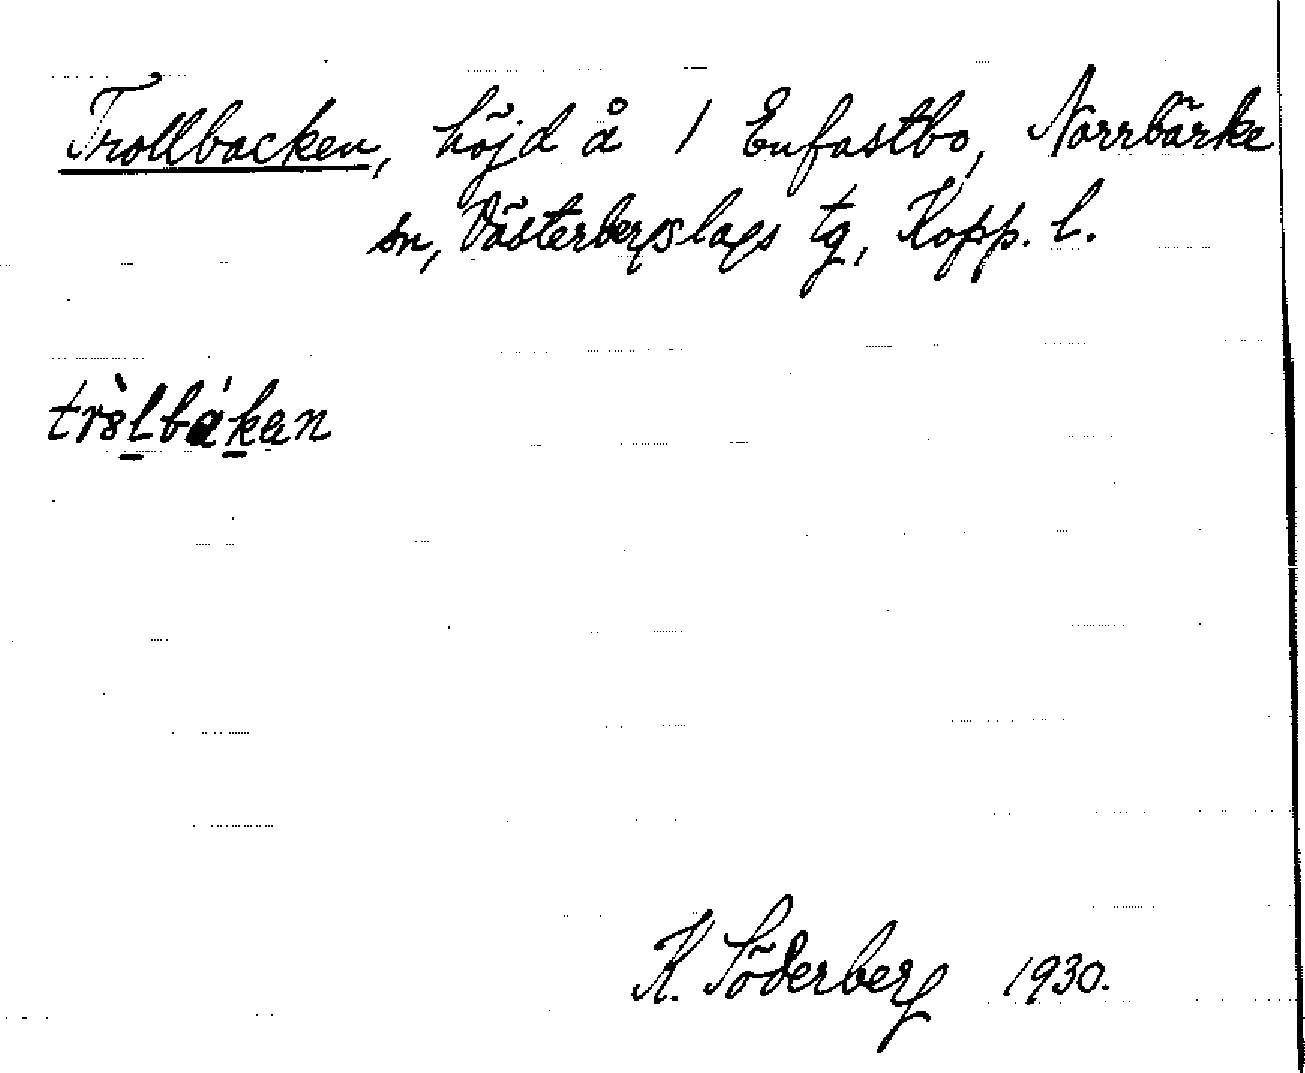 Trollbacken, höjd å 1 Enfastbo, Norrbärke
sn, Västerbergslags tg, Kopp. l.
tròlbákan
K. Söderberg 1930.